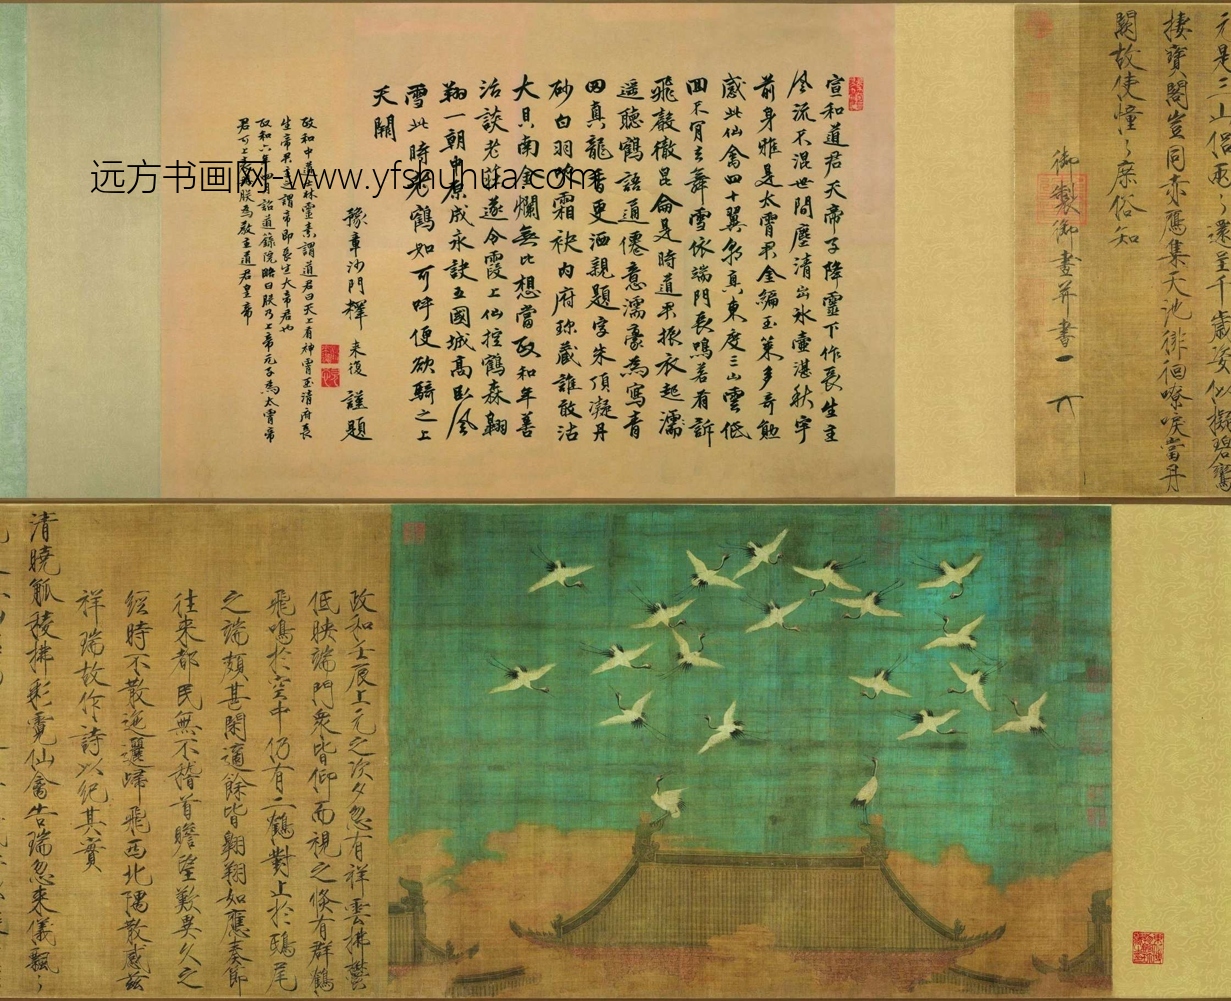 元是三山侶兩〻還呈千歲姿似擬碧鸞
棲寶閣豈同赤鴈集天池徘徊嘹唳當丹
闕故使憧〻庶俗知
御製御畫并書
宣和道君天帝子降靈下作長生主
風流不混世間塵清出氷壺湛秋宇
前身雅是太霄君金編玉策多奇勳
感此仙禽四十翼朝真東度三山雲低
回不肎去舞雪依端門長鳴若有訴
飛聲徹昆侖是時道君振衣起濡
遥聽鶴語通僊意濡豪為寫青
田真龍香更洒親題字朱頂凝丹
砂白羽明霜袂内府珎藏誰敢沽
大貝南金爛無比想當政和年善
治談老莊遂令霞上仙控鶴森翱
翔一朝中原成永訣五國城髙臥風
雪此時老鶴如可呼便欲騎之上
天闕
豫章沙門釋 来復 謹題
政和中道士林靈素謂道君曰天上有神霄玉清府長
生帝君主之謂帝即長生大帝君也
政和六年四月詔道籙院略曰朕乃上帝元子為太霄帝
君可上表冊朕為教主道君皇帝
远方书画网 www.yfshuhua.com
政和壬辰上元之次夕忽有祥雲拂鬱
低映端門衆皆仰而視之倐有群鶴
飛鳴於空中仍有二鶴對止於鴟尾
之端頗甚閑適餘皆翱翔如應奏節
往来都民無不稽首瞻望歎異久之
經時不散迤邐歸飛西北隅散感茲
祥瑞故作詩以紀其實
清曉觚稜拂彩霓仙禽告瑞忽来儀飄〻